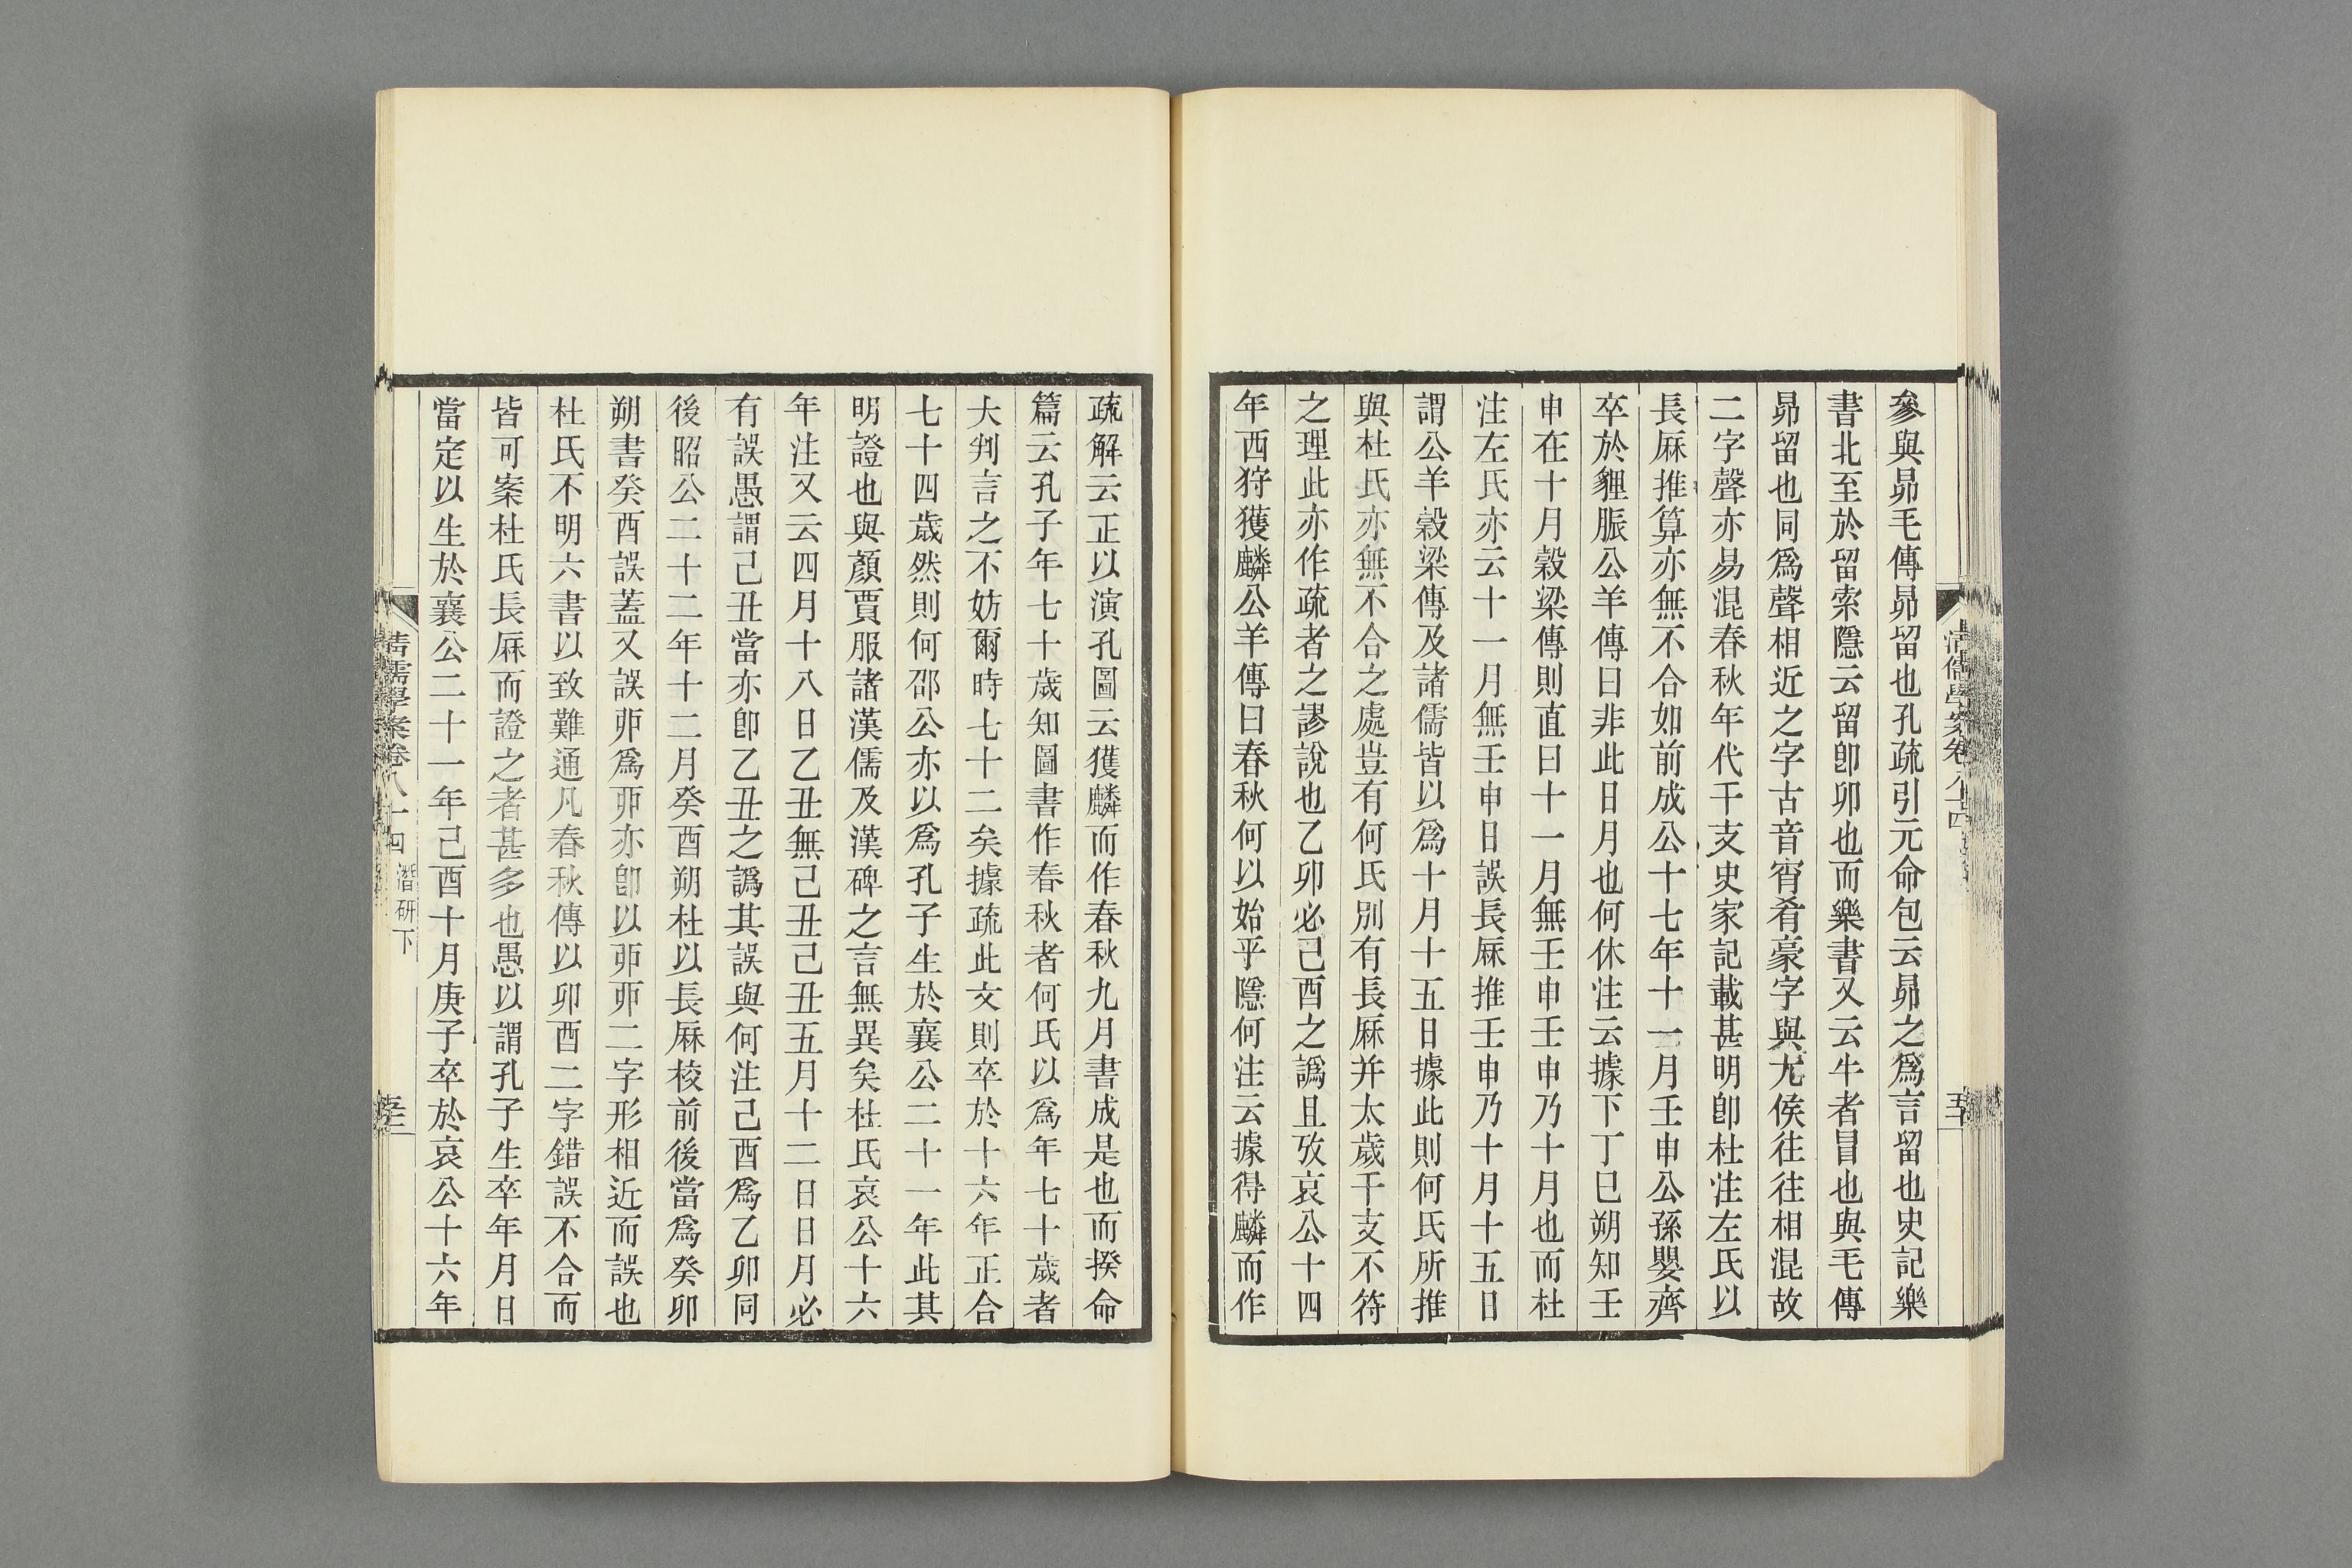 參與昴毛傳昴留也孔疏引元命包云昴之爲言留也史記樂
書北至於留索隱云留卽卯也而樂書又云牛者冒也與毛傳
昴留也同爲聲相近之字古音宵肴豪字與尤侯往往相混故
二字聲亦易混春秋年代干支史家記載甚明卽杜注左氏以
長厤推算亦無不合如前成公十七年十一月壬申公孫嬰齊
卒於貍脤公羊傳曰非此日月也何休注云據下丁巳朔知壬
申在十月穀梁傳則直曰十一月無壬申壬申乃十月也而杜
注左氏亦云十一月無壬申日誤長厤推壬申乃十月十五日
謂公羊穀梁傳及諸儒皆以爲十月十五日據此則何氏所推
與杜氏亦無不合之處豈有何氏別有長厤并太歲干支不符
之理此亦作疏者之謬說也乙卯必己酉之譌且攷哀公十四
年西狩獲麟公羊傳曰春秋何以始乎隱何注云據得麟而作
疏解云正以演孔圖云獲麟而作春秋九月書成是也而揆命
篇云孔子年七十歲知圖書作春秋者何氏以爲年七十歲者
大判言之不妨爾時七十二矣據疏此文則卒於十六年正合
七十四歲然則何邵公亦以爲孔子生於襄公二十一年此其
明證也與顏賈服諸漢儒及漢碑之言無異矣杜氏哀公十六
年注又云四月十八日乙丑無己丑己丑五月十二日日月必
有誤愚謂己丑當亦卽乙丑之譌其誤與何注己酉爲乙卯同
後昭公二十二年十二月癸酉朔杜以長厤校前後當爲癸卯
朔書癸酉誤蓋又誤丣爲戼亦卽以戼丣二字形相近而誤也
杜氏不明六書以致難通凡春秋傳以卯酉二字錯誤不合而
皆可案杜氏長厤而證之者甚多也愚以謂孔子生卒年月日
當定以生於襄公二十一年己酉十月庚子卒於哀公十六年
清儒學案卷八十四 潛研下